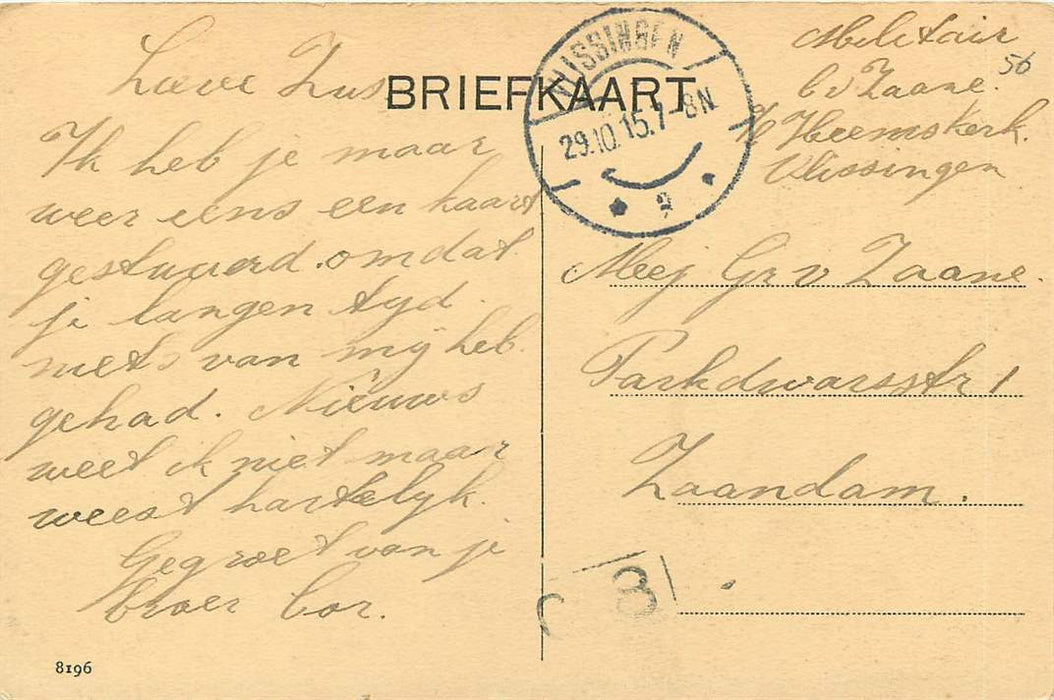 BRIEFKAART
Lieve Zus
Ik heb je maar
weer eens een kaart
gestuurd. omdat
je langen tyd
niets van mij heb
gehad. Niéuws
weet ik niet maar
weest hartelyk.
Gegroet van je
broer Cor.
8196
VLISSINGEN
29.10.15.7-8N
Militair
C v Zaane.
Heemskerk.
Vlissingen
56
Mej Gr v Zaane.
Parkdwarsstr 1
Zaandam.
3